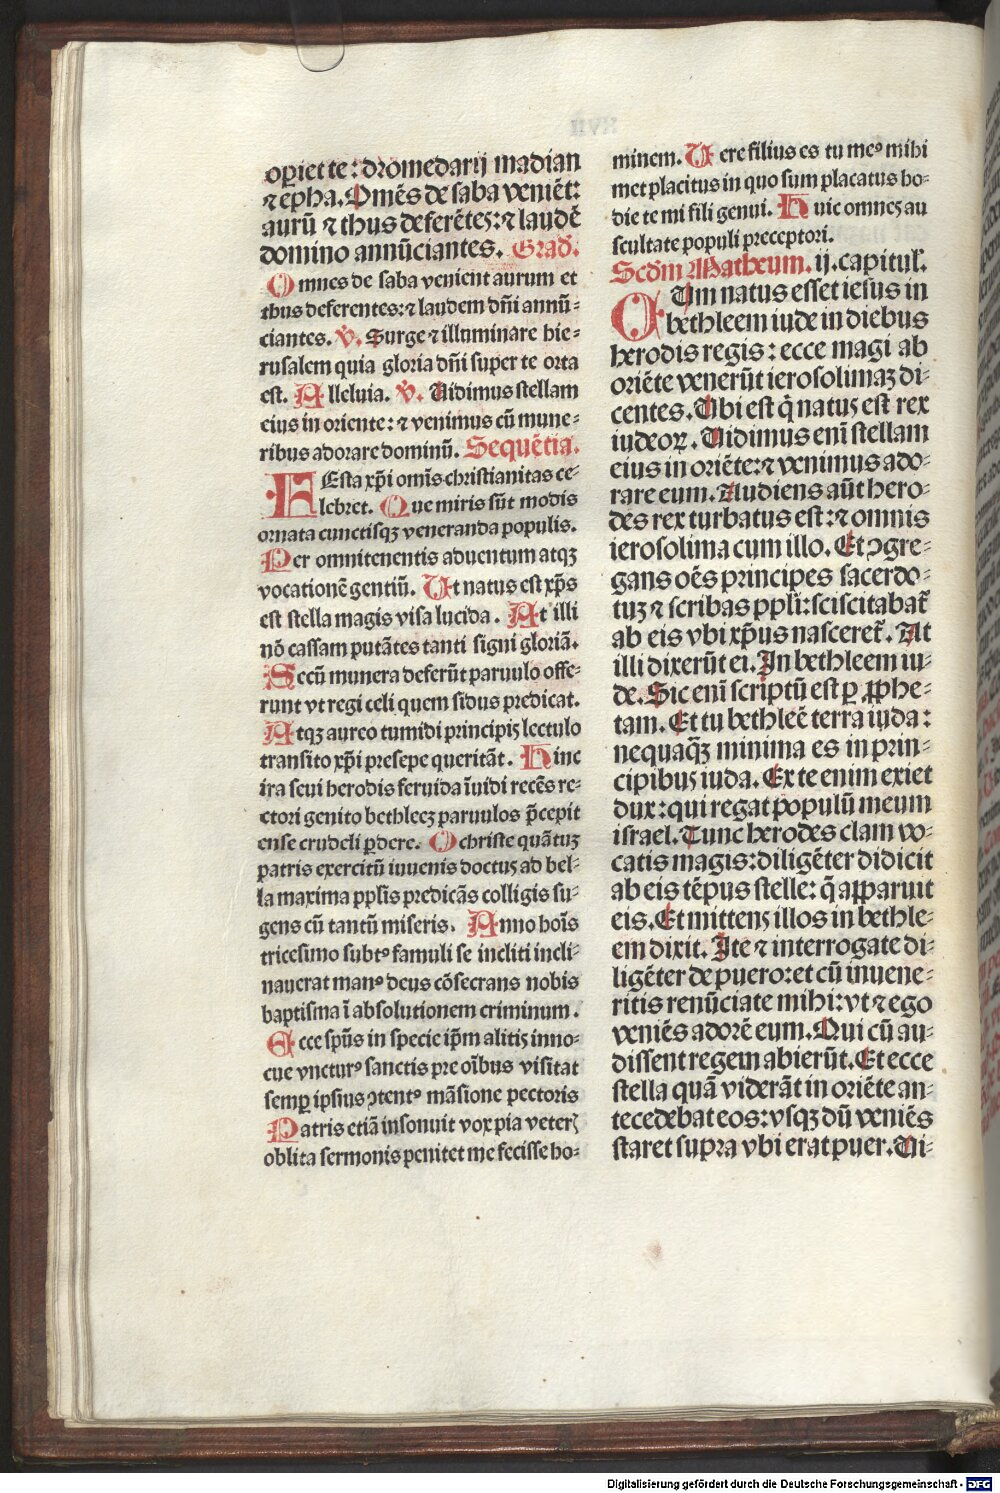 oꝑiet te: dromedarij madian
⁊ epha. Om̄es de saba veniēt:
aurū ⁊ thus deferētes: ⁊ laudē
domino annūciantes. Grad̄.
Omnes de saba venient aurum et
thus deferentes: ⁊ laudem dn̄i annū-
ciantes. ℣. Surge ⁊ illuminare hie-
rusalem quia gloria dn̄i super te orta
est. Alleluia. ℣. Uidimus stellam
eius in oriente: ⁊ venimus cū mune-
ribus adorare dominū. Sequētia.
FEsta xp̄i om̄is christianitas ce-
lebret. Que miris sūt modis
ornata cunctisqꝫ veneranda populis.
Per omnitenentis aduentum atqꝫ
vocationē gentiū. Ut natus est xp̄s
est stella magis visa lucida. At illi
nō cassam putātes tanti signi gloriā.
Secū munera deferūt paruulo offe-
runt vt regi celi quem sidus predicat.
Atqꝫ aureo tumidi principis lectulo
transito xp̄i presepe queritāt. Hinc
ira seui herodis feruida īuidi recēs re-
ctori genito bethleeꝫ paruulos p̄cepit
ense crudeli ꝑdere. O christe quātuꝫ
patris exercitū iuuenis doctus ad bel-
la maxima pplis predicās colligis su-
gens cū tantū miseris. Anno hoīs
tricesimo subtꝰ famuli se incliti incli-
nauerat manꝰ deus cōsecrans nobis
baptisma ī absolutionem criminum.
Ecce sp̄us in specie ip̄m alitis inno-
cue vncturꝰ sanctis pre oībus visitat
semꝑ ipsius ↄtentꝰ māsione pectoris
Patris etiā insonuit vox pia veterꝫ
oblita sermonis penitet me fecisse ho-
minem. Uere filius es tu meꝰ mihi
met placitus in quo sum placatus ho-
die te mi fili genui. Huic omnes au
scultate populi preceptori.
Scd̄m Matheum. ij. capitul̄.
CUm natus esset iesus in
bethleem iude in diebus
herodis regis: ecce magi ab
oriēte venerūt ierosolimaꝫ di-
centes. Ubi est q̄ natus est rex
iudeoꝝ. Uidimus enī stellam
eius in oriēte: ⁊ venimus ado-
rare eum. Audiens aūt hero-
des rex turbatus est: ⁊ omnis
ierosolima cum illo. Et ↄgre-
gans oēs principes sacerdo-
tuꝫ ⁊ scribas ppli: sciscitabat᷑
ab eis vbi xp̄us nasceret᷑. At
illi dixerūt ei. In bethleem iu-
de. Sic enī scriptū est ꝑ ꝓphe-
tam. Et tu bethleē terra iuda:
nequaq̄ꝫ minima es in prin-
cipibus iuda. Ex te enim exiet
dux: qui regat populū meum
israel. Tunc herodes clam vo-
catis magis: diligēter didicit
ab eis tēpus stelle: q̄ apparuit
eis. Et mittens illos in bethle-
em dixit. Ite ⁊ interrogate di-
ligēter de puero: et cū inuene-
ritis renūciate mihi: vt ⁊ ego
veniēs adorē eum. Qui cū au-
dissent regem abierūt. Et ecce
stella quā viderāt in oriēte an-
tecedebat eos: vsqꝫ dū veniēs
staret supra vbi erat puer. Ui-
Digitalisierung gefördert durch die Deutsche Forschungsgemeinschaft - DFG